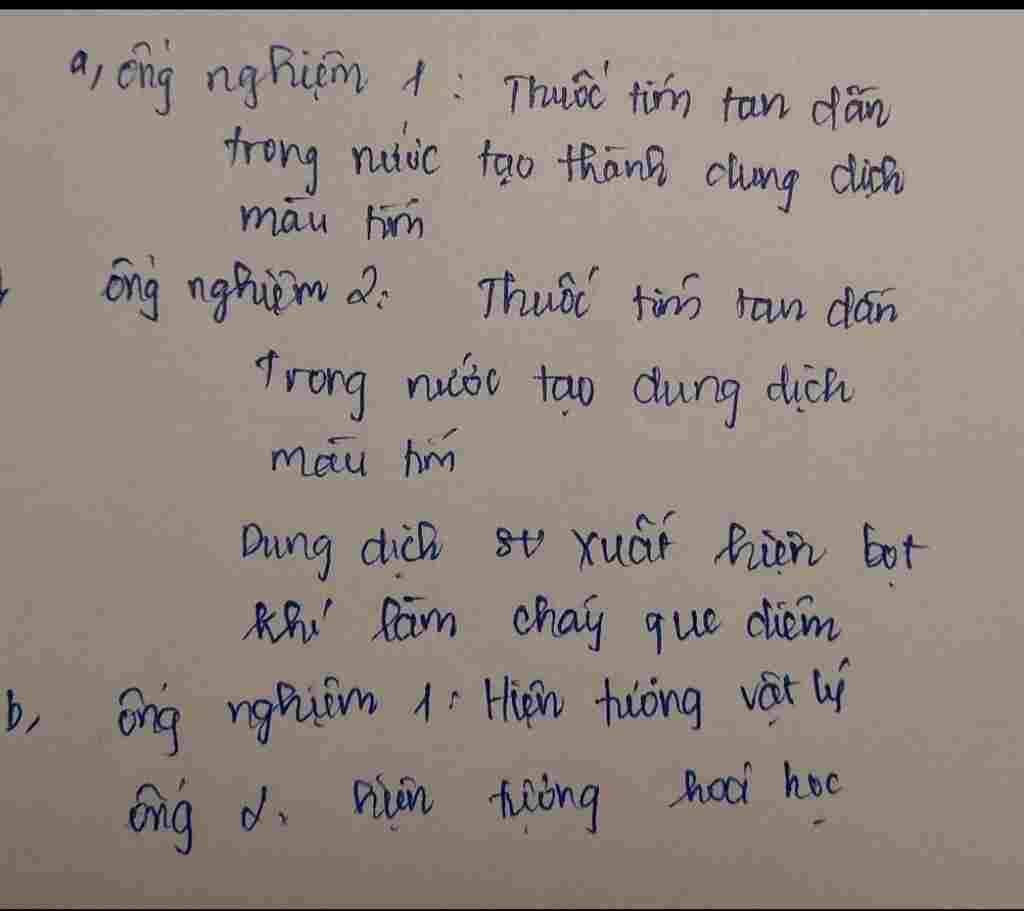 a, ống nghiệm 1 : Thuốc tím tan dần
trong nước tạo thành dung dịch
màu tím
ống nghiệm 2: Thuốc tím tan dần
Trong nước tạo dung dịch
màu tím
Dung dịch sự xuất hiện bọt
khí làm cháy que diêm
b, ống nghiệm 1: Hiện tượng vật lý
ống 2. hiện tượng hoá học